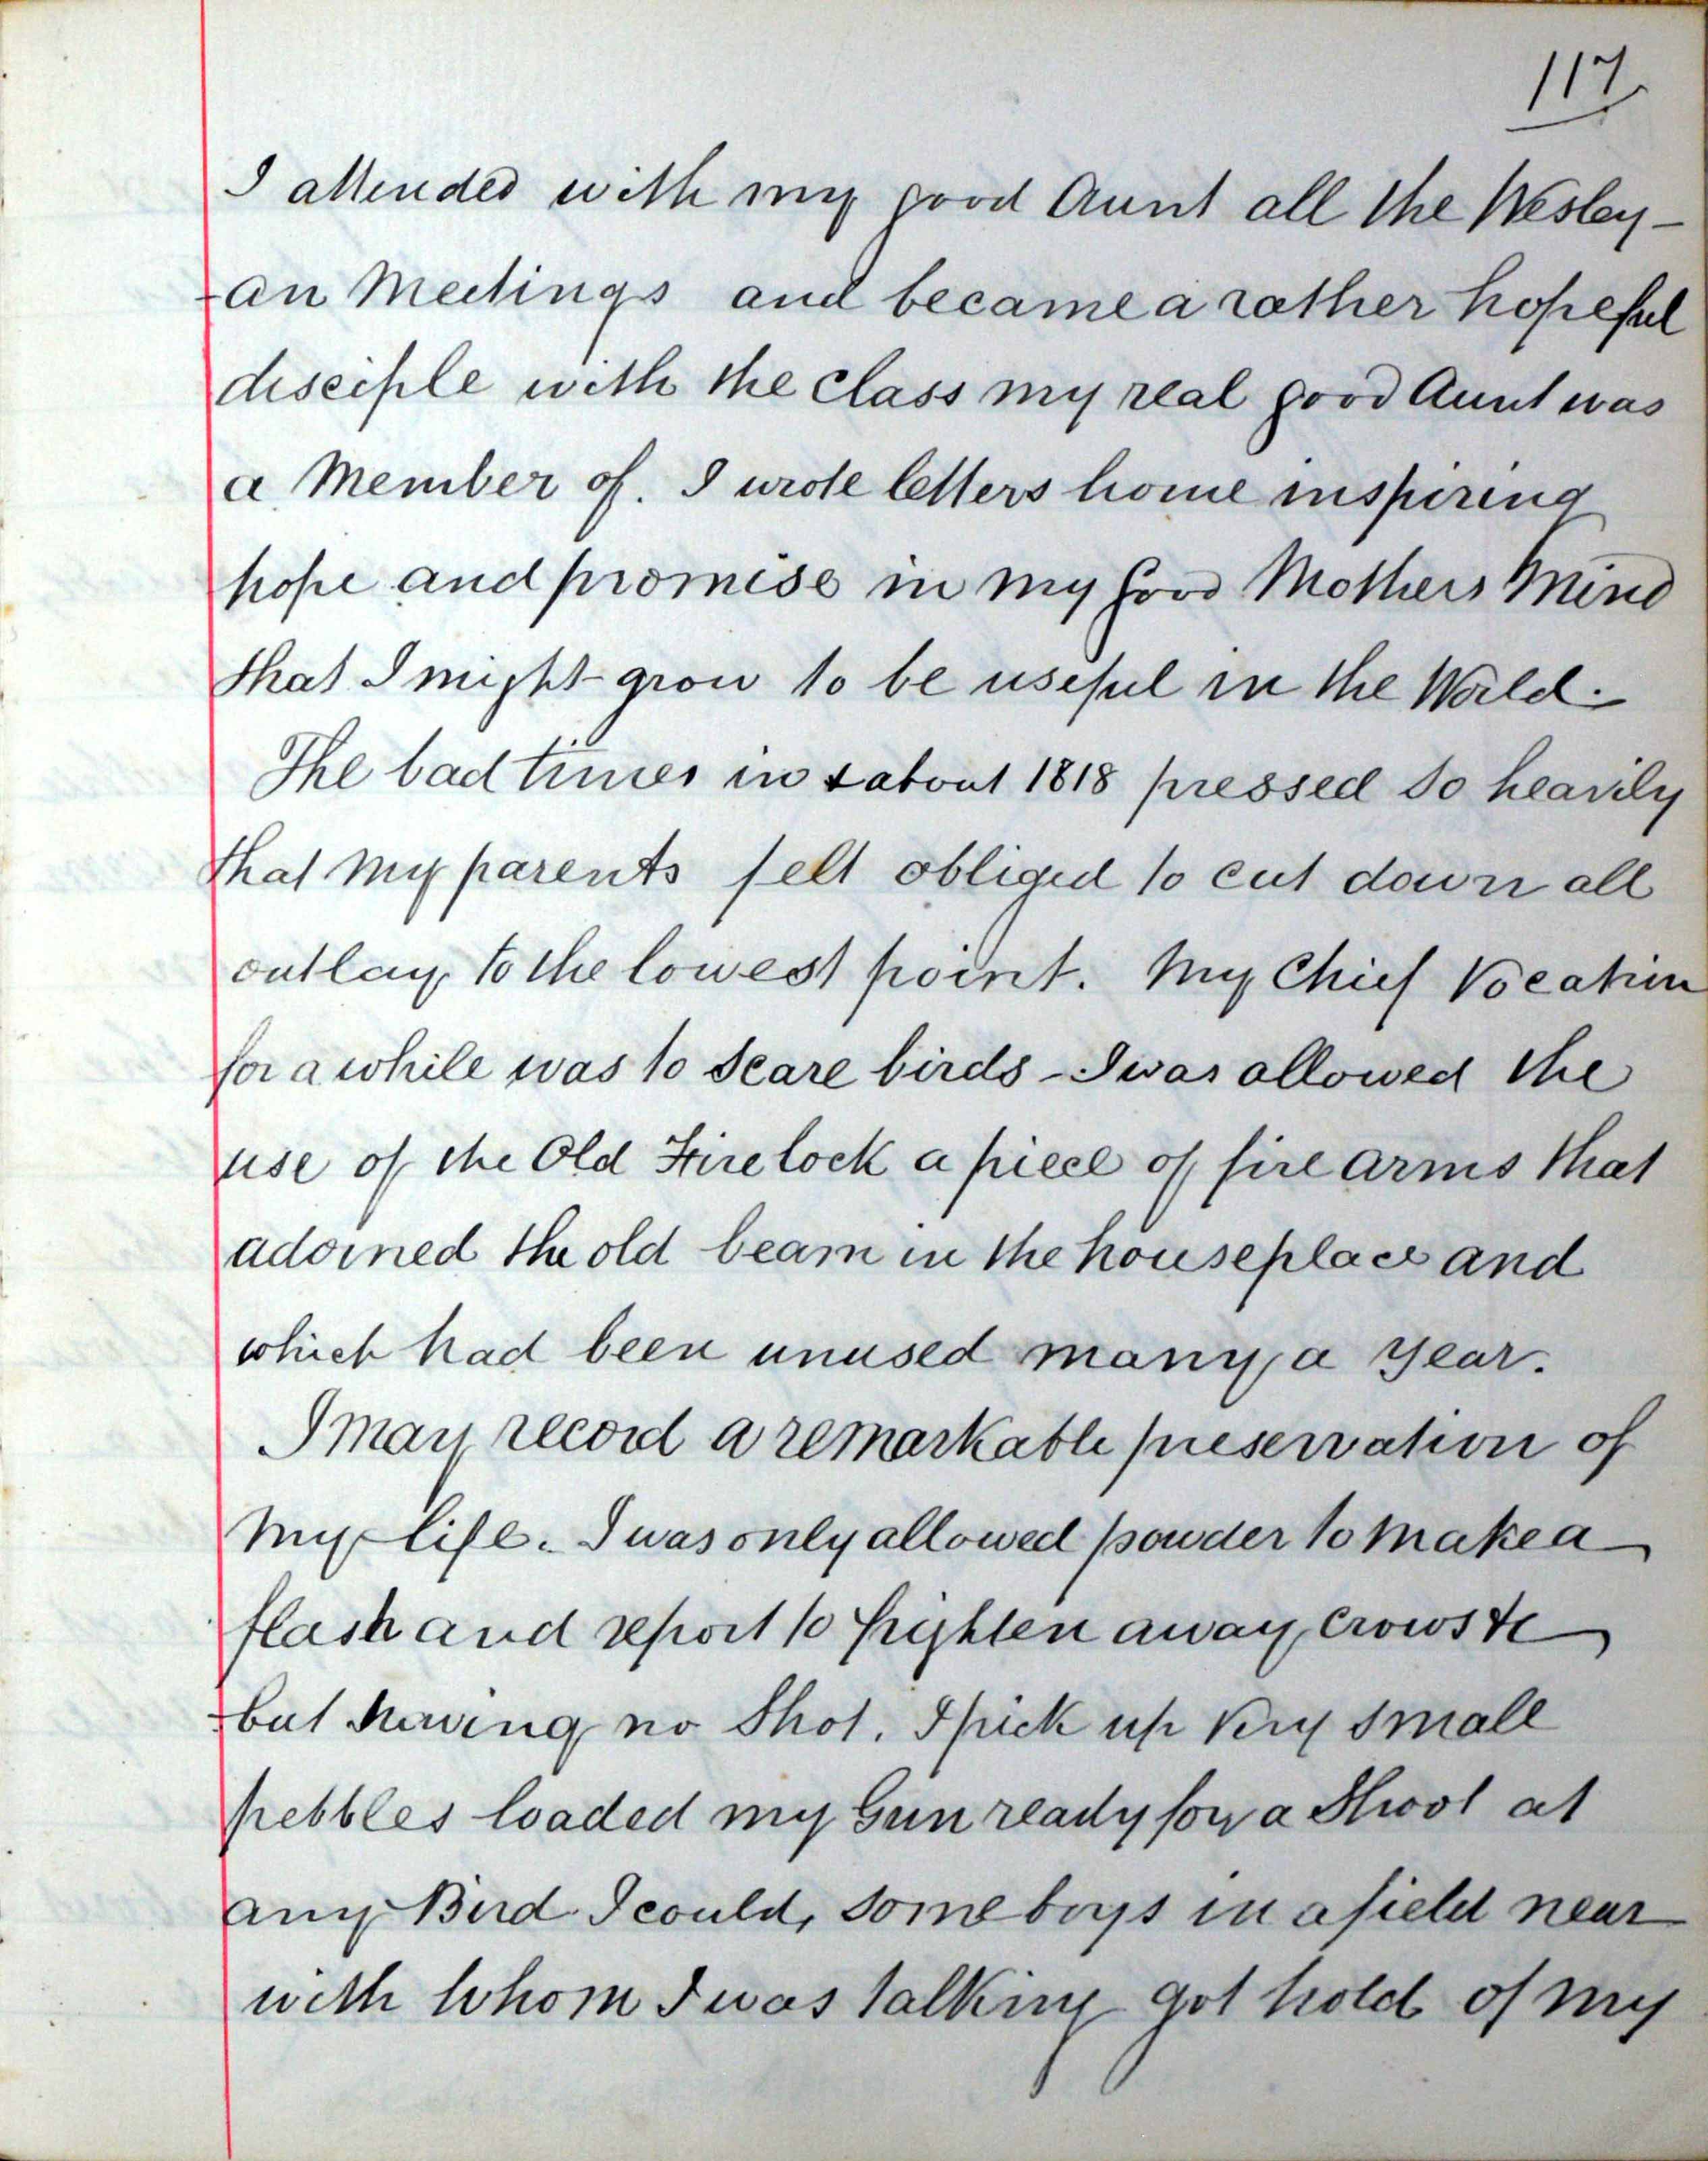 117
I attended with my good Aunt all the Wesley-
-an Meetings and became a rather hopeful
disciple with the Class my real good Aunt was
a Member of. I wrote letters home inspiring
hope and promise in my Good Mothers Mind
that I might grow to be useful in the World.
The bad times in & about 1818 pressed so heavily
that my parents felt obliged to cut down all
outlay to the lowest point. My Chief Vocation
for a while was to Scare birds - I was allowed the
use of the Old Fire lock a piece of fire arms that
adorned the old beam in the houseplace and
which had been unused many a year.
I may record a remarkable preservation of
my life. I was only allowed powder to make a
flash and report to frighten away Crows &c
but having no Shot. I pick up very small
pebbles loaded my Gun ready for a Shoot at
any Bird I could, some boys in a field near
with whom I was talking got hold of my